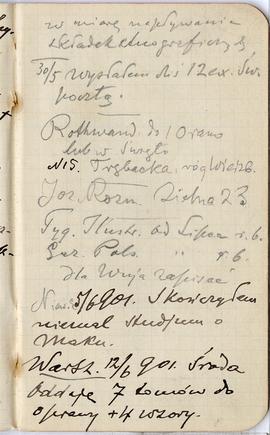 w miarę napływania
składek etnograficzn
30/5 wysłałem dziś 12 ex. Św.
pocztą.
Rothwand do 10 rano
lub w święto
N 15. Trębacka, róg Wierzb.
Joz. Rozn. Zielna 23
Tyg. Illustr. od Lipca r. b.
Gaz. Pols. " r. b.
dla Wuja zapisać
5/6 901. Skończyłem
niemal studjum o
Maku.
Warsz. 12/6 901. Środa
Oddaję 7 tomów do
oprawy + 4 wzory.